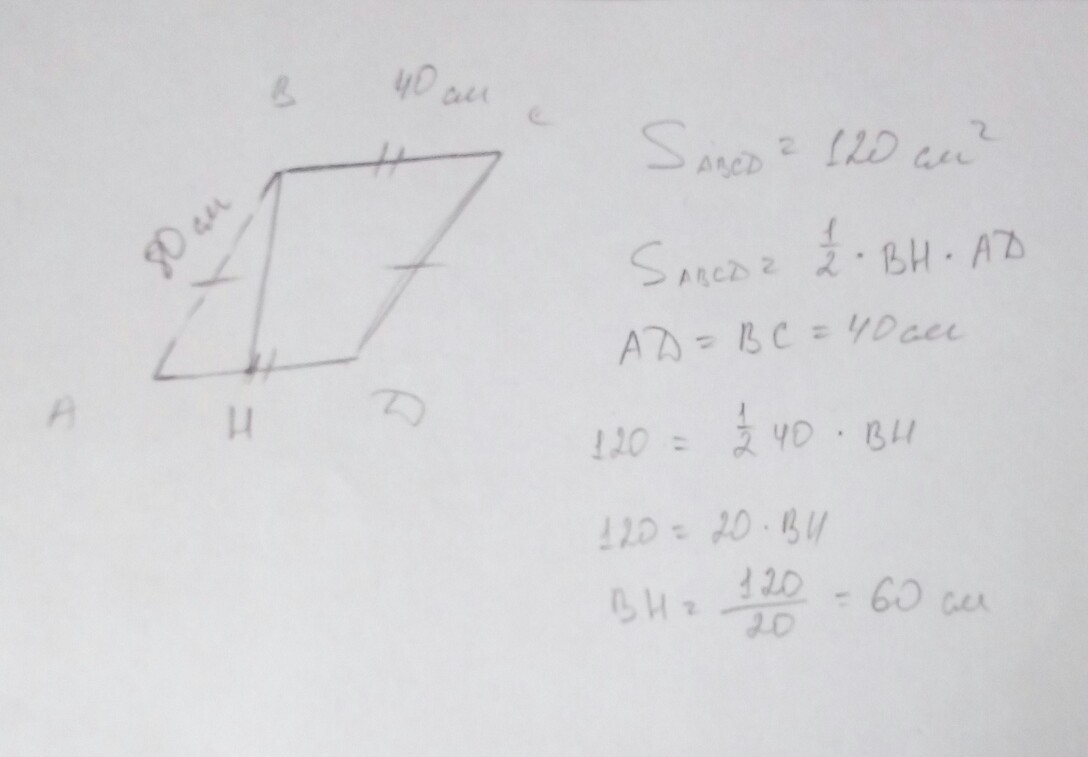 B 40 см C
80 см
A H D
S ABCD = 120 см²
S ABCD = 1/2 · BH · AD
AD = BC = 40 см
120 = 1/2 40 · BH
120 = 20 · BH
BH = 120/20 = 60 см